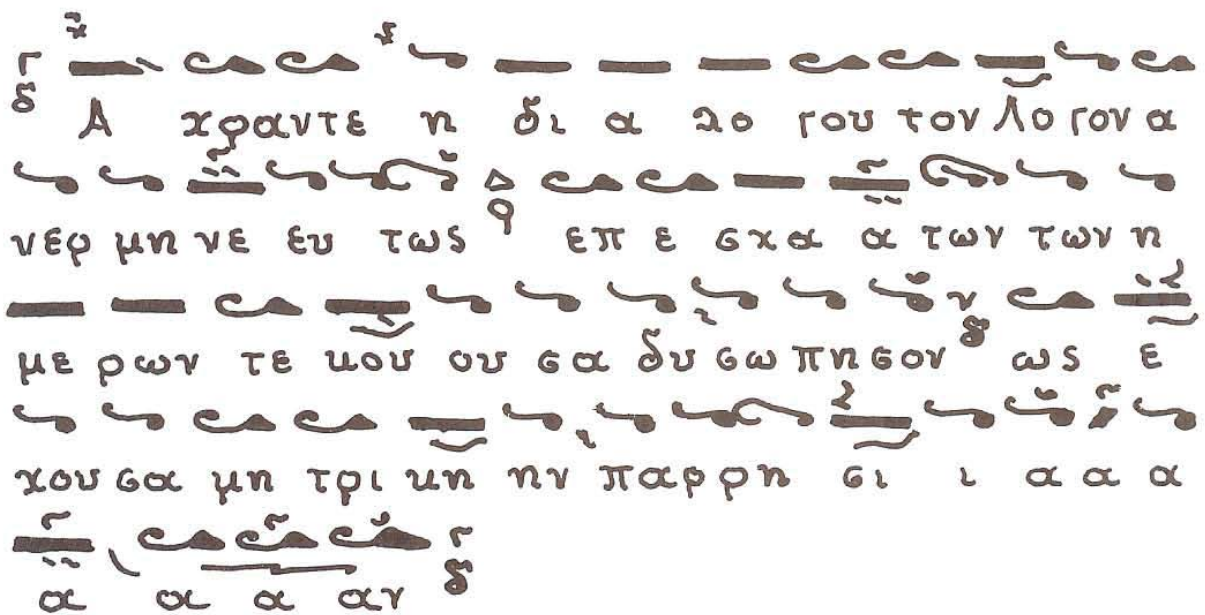 Α χραντε η δι α λο γου τον Λο γον α
νερ μη νε ευ τως επ ε σχα α των των η
με ρων τε κου ου σα δυ σω πη σον ως ε
χου σα μη τρι κη ην παρ ρη σι ι α α α
α α α αν